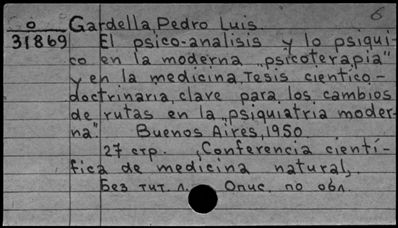 6
o Gardella, Pedro Luis
31869 El psico-analisis y lo psiqui-
co en la moderna „psicoterapia"
y en la medicina. Tesis cientico-
doctrinaria, clave para los cambios
de rutas en la „psiquiatria moder-
na". Buenos Aires, 1950.
27 стр. „Conferencia cientí-
fica de medicina natural„.
Без тит. л. Опис. по обл.